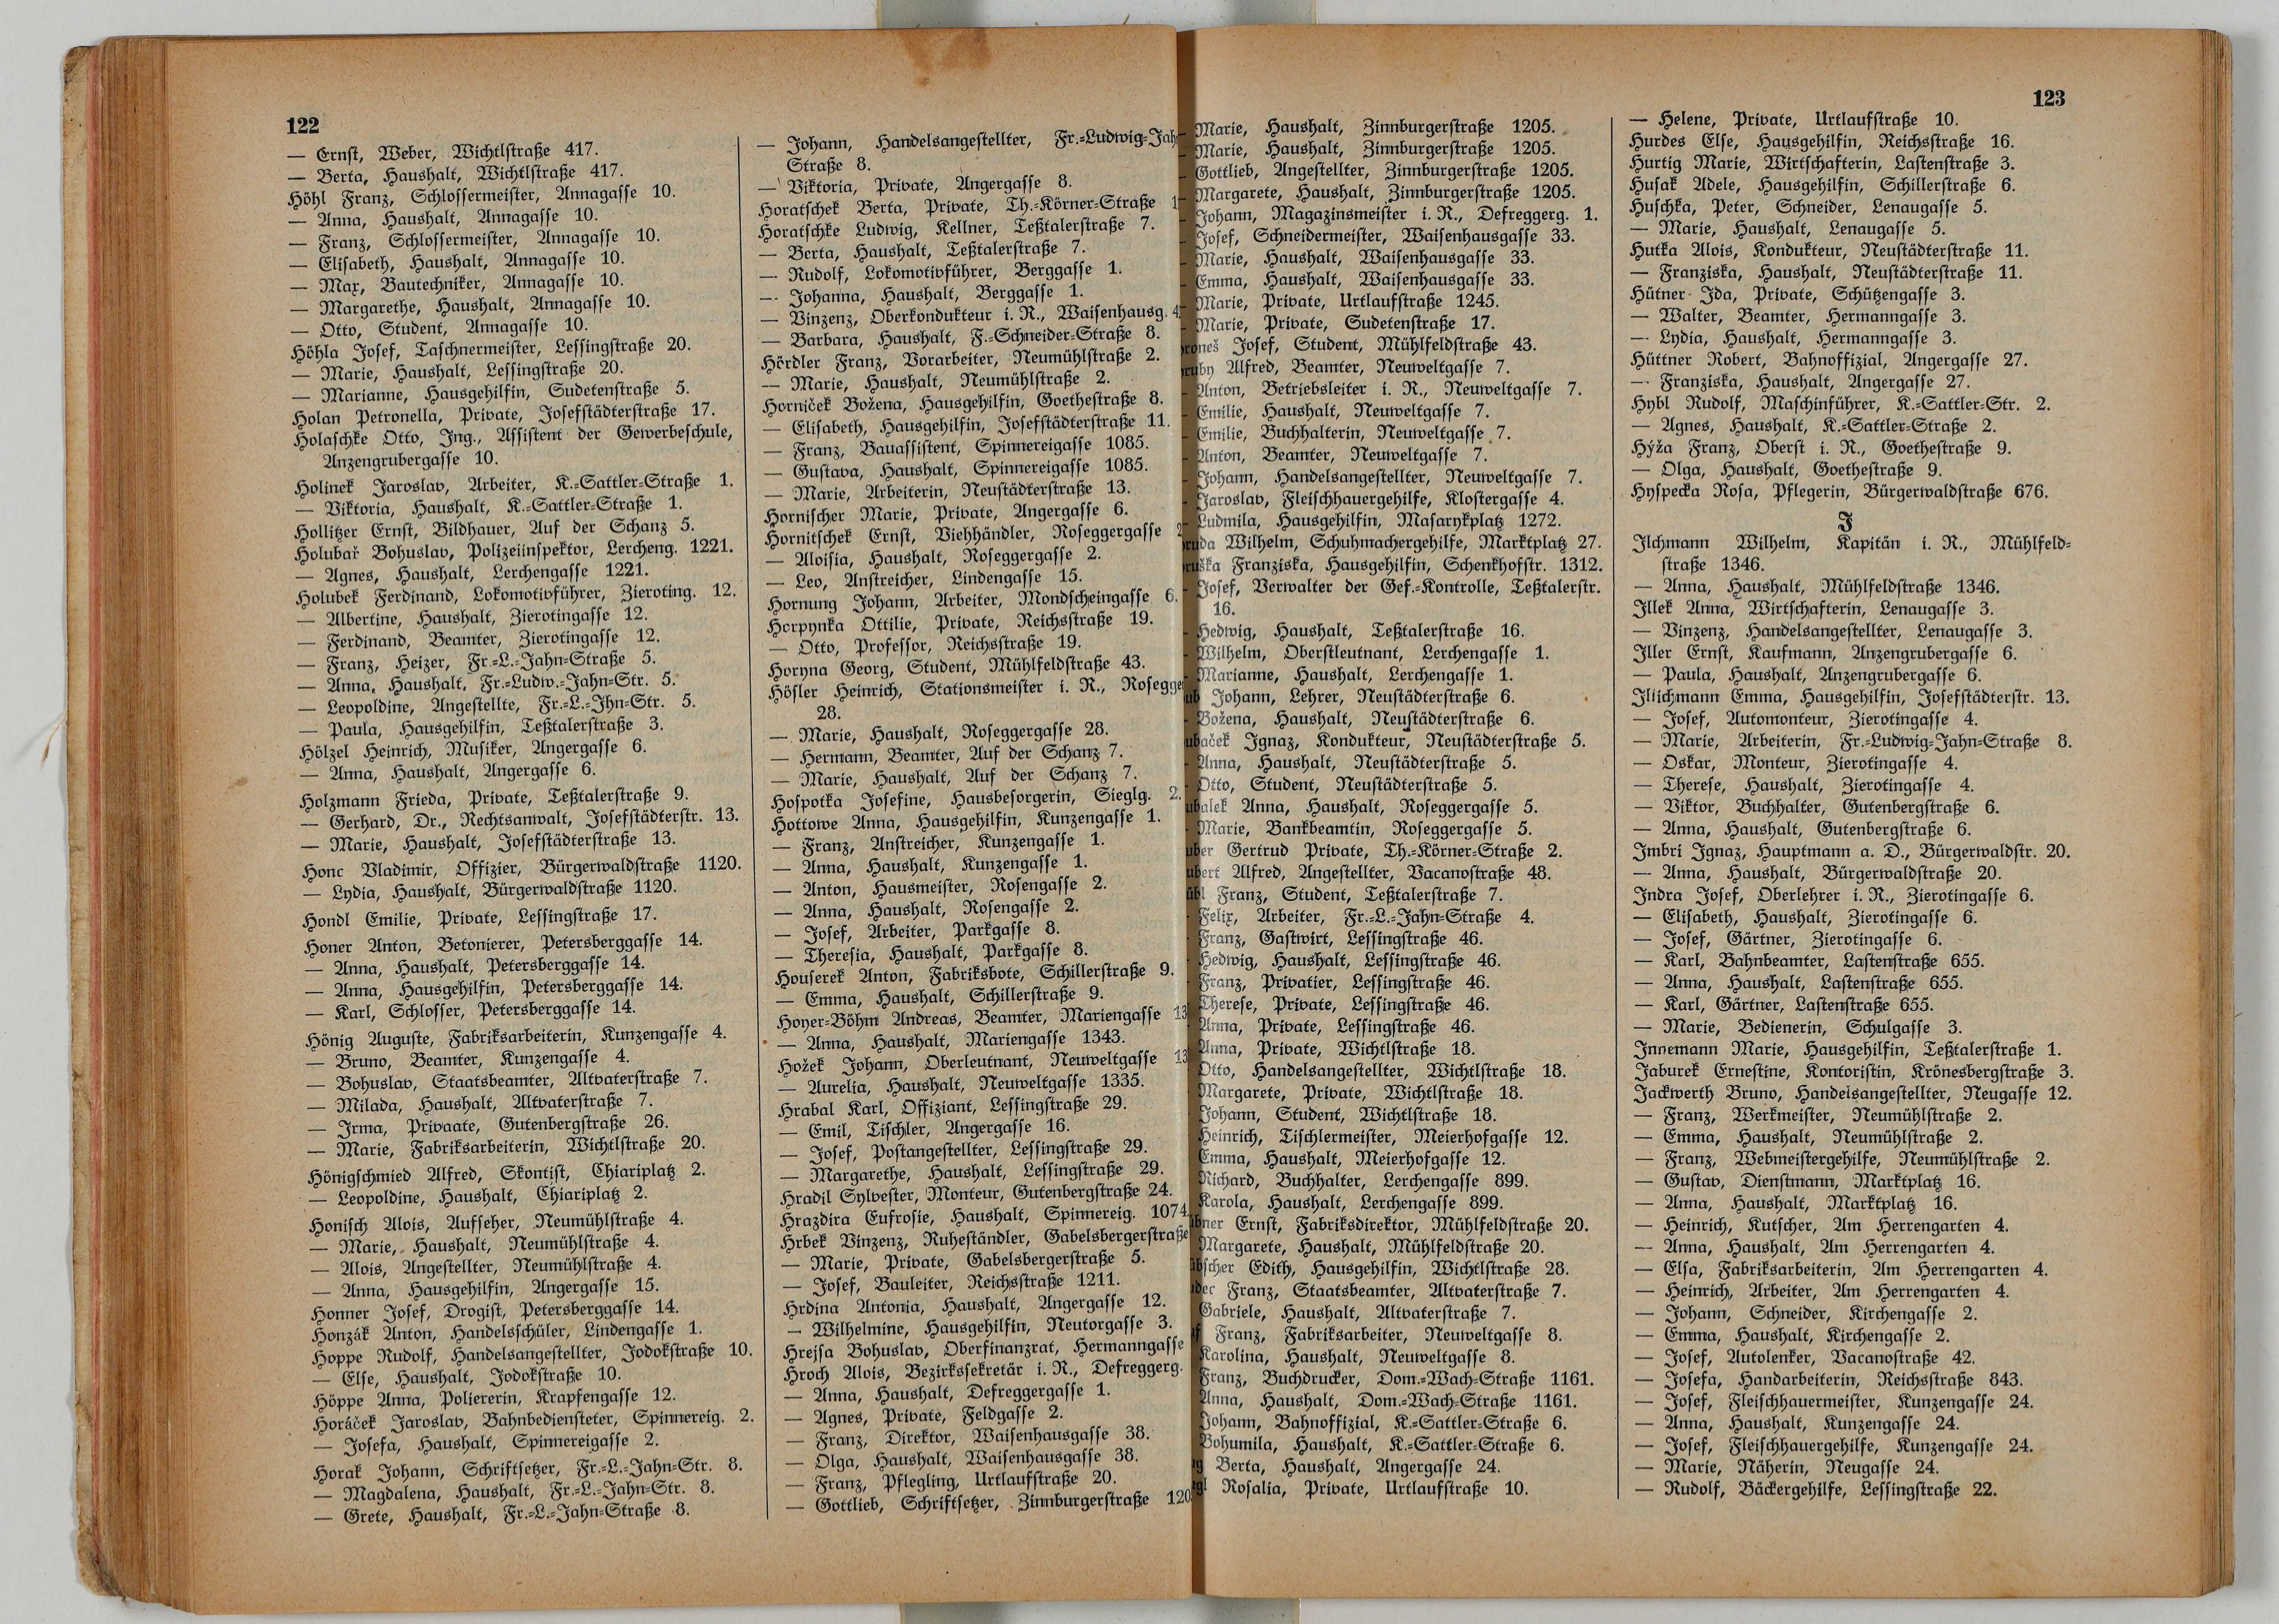 122
— Ernst, Weber, Wichtlstraße 417.
— Berta, Haushalt, Wichtlstraße 417.
Höhl Franz, Schlossermeister, Annagasse 10.
— Anna, Haushalt, Annagasse 10.
— Franz, Schlossermeister, Annagasse 10.
— Elisabeth, Haushalt, Annagasse 10.
— Max, Bautechniker, Annagasse 10.
— Margarethe, Haushalt, Annagasse 10.
— Otto, Student, Annagasse 10.
Höhla Josef, Taschnermeister, Lessingstraße 20.
— Marie, Haushalt, Lessingstraße 20.
— Marianne, Hausgehilfin, Sudetenstraße 5.
Holan Petronella, Private, Josefstädterstraße 17.
Holaschke Otto, Ing., Assistent der Gewerbeschule,
Anzengrubergasse 10.
Holinek Jaroslav, Arbeiter, K.=Sattler=Straße 1.
— Viktoria, Haushalt, K.=Sattler=Straße 1.
Hollitzer Ernst, Bildhauer, Auf der Schanz 5.
Holubař Bohuslav, Polizeiinspektor, Lercheng. 1221.
— Agnes, Haushalt, Lerchengasse 1221.
Holubek Ferdinand, Lokomotivführer, Zieroting. 12.
— Albertine, Haushalt, Zierotingasse 12.
— Ferdinand, Beamter, Zierotingasse 12.
— Franz, Heizer, Fr.=L.=Jahn=Straße 5.
— Anna, Haushalt, Fr.=Ludw.=Jahn=Str. 5.
— Leopoldine, Angestellte, Fr.=L.=Ihn=Str. 5.
— Paula, Hausgehilfin, Teßtalerstraße 3.
Hölzel Heinrich, Musiker, Angergasse 6.
— Anna, Haushalt, Angergasse 6.
Holzmann Frieda, Private, Teßtalerstraße 9.
— Gerhard, Dr., Rechtsanwalt, Josefstädterstr. 13.
— Marie, Haushalt, Josefstädterstraße 13.
Honc Vladimir, Offizier, Bürgerwaldstraße 1120.
— Lydia, Haushalt, Bürgerwaldstraße 1120.
Hondl Emilie, Private, Lessingstraße 17.
Honer Anton, Betonierer, Petersberggasse 14.
— Anna, Haushalt, Petersberggasse 14.
— Anna, Hausgehilfin, Petersberggasse 14.
— Karl, Schlosser, Petersberggasse 14.
Hönig Auguste, Fabriksarbeiterin, Kunzengasse 4.
— Bruno, Beamter, Kunzengasse 4.
— Bohuslav, Staatsbeamter, Altvaterstraße 7.
— Milada, Haushalt, Altvaterstraße 7.
— Irma, Privaate, Gutenbergstraße 26.
— Marie, Fabriksarbeiterin, Wichtlstraße 20.
Hönigschmied Alfred, Skontist, Chiariplatz 2.
— Leopoldine, Haushalt, Chiariplatz 2.
Honisch Alois, Aufseher, Neumühlstraße 4.
— Marie, Haushalt, Neumühlstraße 4.
— Alois, Angestellter, Neumühlstraße 4.
— Anna, Hausgehilfin, Angergasse 15.
Honner Josef, Drogist, Petersberggasse 14.
Honzák Anton, Handelsschüler, Lindengasse 1.
Hoppe Rudolf, Handelsangestellter, Jodokstraße 10.
— Else, Haushalt, Jodokstraße 10.
Höppe Anna, Poliererin, Krapfengasse 12.
Horáček Jaroslav, Bahnbediensteter, Spinnereig. 2.
— Josefa, Haushalt, Spinnereigasse 2.
Horak Johann, Schriftsetzer, Fr.=L.=Jahn=Str. 8.
— Magdalena, Haushalt, Fr.=L.=Jahn=Str. 8.
— Grete, Haushalt, Fr.=L.=Jahn=Straße 8.
— Johann, Handelsangestellter, Fr.=Ludwig=Jah
Straße 8.
— Viktoria, Private, Angergasse 8.
Horatschek Berta, Private, Th.=Körner=Straße 1
Horatschke Ludwig, Kellner, Teßtalerstraße 7.
— Berta, Haushalt, Teßtalerstraße 7.
— Rudolf, Lokomotivführer, Berggasse 1.
— Johanna, Haushalt, Berggasse 1.
— Vinzenz, Oberkondukteur i. R., Waisenhausg. 4
— Barbara, Haushalt, F.=Schneider=Straße 8.
Hördler Franz, Vorarbeiter, Neumühlstraße 2.
— Marie, Haushalt, Neumühlstraße 2.
Horniček Božena, Hausgehilfin, Goethestraße 8.
— Elisabeth, Hausgehilfin, Josefstädterstraße 11.
— Franz, Bauassistent, Spinnereigasse 1085.
— Gustava, Haushalt, Spinnereigasse 1085.
— Marie, Arbeiterin, Neustädterstraße 13.
Hornischer Marie, Private, Angergasse 6.
Hornitschek Ernst, Viehhändler, Roseggergasse 2
— Aloisia, Haushalt, Roseggergasse 2.
— Leo, Anstreicher, Lindengasse 15.
Hornung Johann, Arbeiter, Mondscheingasse 6.
Horpynka Ottilie, Private, Reichsstraße 19.
— Otto, Professor, Reichsstraße 19.
Horyna Georg, Student, Mühlfeldstraße 43.
Hösler Heinrich, Stationsmeister i. R., Rosegge
28.
— Marie, Haushalt, Roseggergasse 28.
— Hermann, Beamter, Auf der Schanz 7.
— Marie, Haushalt, Auf der Schanz 7.
Hospotka Josefine, Hausbesorgerin, Sieglg. 2.
Hottowe Anna, Hausgehilfin, Kunzengasse 1.
— Franz, Anstreicher, Kunzengasse 1.
— Anna, Haushalt, Kunzengasse 1.
— Anton, Hausmeister, Rosengasse 2.
— Anna, Haushalt, Rosengasse 2.
— Josef, Arbeiter, Parkgasse 8.
— Theresia, Haushalt, Parkgasse 8.
Houserek Anton, Fabriksbote, Schillerstraße 9.
— Emma, Haushalt, Schillerstraße 9.
Hoyer=Böhm Andreas, Beamter, Mariengasse 13
— Anna, Haushalt, Mariengasse 1343.
Hožek Johann, Oberleutnant, Neuweltgasse 13
— Aurelia, Haushalt, Neuweltgasse 1335.
Hrabal Karl, Offiziant, Lessingstraße 29.
— Emil, Tischler, Angergasse 16.
— Josef, Postangestellter, Lessingstraße 29.
— Margarethe, Haushalt, Lessingstraße 29.
Hradil Sylvester, Monteur, Gutenbergstraße 24.
Hrazdira Eufrosie, Haushalt, Spinnereig. 1074
Hrbek Vinzenz, Ruheständler, Gabelsbergerstraße
— Marie, Private, Gabelsbergerstraße 5.
— Josef, Bauleiter, Reichsstraße 1211.
Hrdina Antonia, Haushalt, Angergasse 12.
— Wilhelmine, Hausgehilfin, Neutorgasse 3.
Hrejsa Bohuslav, Oberfinanzrat, Hermanngasse
Hroch Alois, Bezirkssekretär i. R., Defreggerg.
— Anna, Haushalt, Defreggergasse 1.
— Agnes, Private, Feldgasse 2.
— Franz, Direktor, Waisenhausgasse 38.
— Olga, Haushalt, Waisenhausgasse 38.
— Franz, Pflegling, Urtlaufstraße 20.
— Gottlieb, Schriftsetzer, Zinnburgerstraße 120
123
— Marie, Haushalt, Zinnburgerstraße 1205.
— Marie, Haushalt, Zinnburgerstraße 1205.
Gottlieb, Angestellter, Zinnburgerstraße 1205.
Margarete, Haushalt, Zinnburgerstraße 1205.
Johann, Magazinsmeister i. R., Defreggerg. 1.
Josef, Schneidermeister, Waisenhausgasse 33.
Marie, Haushalt, Waisenhausgasse 33.
Emma, Haushalt, Waisenhausgasse 33.
Marie, Private, Urtlaufstraße 1245.
Marie, Private, Sudetenstraße 17.
roneš Josef, Student, Mühlfeldstraße 43.
ruby Alfred, Beamter, Neuweltgasse 7.
Anton, Betriebsleiter i. R., Neuweltgasse 7.
Emilie, Haushalt, Neuweltgasse 7.
Emilie, Buchhalterin, Neuweltgasse 7.
Anton, Beamter, Neuweltgasse 7.
Johann, Handelsangestellter, Neuweltgasse 7.
Jaroslav, Fleischhauergehilfe, Klostergasse 4.
Ludmila, Hausgehilfin, Masarykplatz 1272.
ruda Wilhelm, Schuhmachergehilfe, Marktplatz 27.
ruška Franziska, Hausgehilfin, Schenkhofstr. 1312.
Josef, Verwalter der Gef.=Kontrolle, Teßtalerstr.
16.
Hedwig, Haushalt, Teßtalerstraße 16.
Wilhelm, Oberstleutnant, Lerchengasse 1.
Marianne, Haushalt, Lerchengasse 1.
ub Johann, Lehrer, Neustädterstraße 6.
Božena, Haushalt, Neustädterstraße 6.
ubaček Ignaz, Kondukteur, Neustädterstraße 5.
Anna, Haushalt, Neustädterstraße 5.
Otto, Student, Neustädterstraße 5.
ubalek Anna, Haushalt, Roseggergasse 5.
Marie, Bankbeamtin, Roseggergasse 5.
uber Gertrud Private, Th.=Körner=Straße 2.
ubert Alfred, Angestellter, Vacanostraße 48.
übl Franz, Student, Teßtalerstraße 7.
Felix, Arbeiter, Fr.=L.=Jahn=Straße 4.
Franz, Gastwirt, Lessingstraße 46.
Hedwig, Haushalt, Lessingstraße 46.
Franz, Privatier, Lessingstraße 46.
Therese, Private, Lessingstraße 46.
Anna, Private, Lessingstraße 46.
Anna, Private, Wichtlstraße 18.
Otto, Handelsangestellter, Wichtlstraße 18.
Margarete, Private, Wichtlstraße 18.
Johann, Student, Wichtlstraße 18.
Heinrich, Tischlermeister, Meierhofgasse 12.
Emma, Haushalt, Meierhofgasse 12.
Richard, Buchhalter, Lerchengasse 899.
Karola, Haushalt, Lerchengasse 899.
übner Ernst, Fabriksdirektor, Mühlfeldstraße 20.
Margarete, Haushalt, Mühlfeldstraße 20.
übscher Edith, Hausgehilfin, Wichtlstraße 28.
udec Franz, Staatsbeamter, Altvaterstraße 7.
Gabriele, Haushalt, Altvaterstraße 7.
f Franz, Fabriksarbeiter, Neuweltgasse 8.
Karolina, Haushalt, Neuweltgasse 8.
Franz, Buchdrucker, Dom.=Wach=Straße 1161.
Anna, Haushalt, Dom.=Wach=Straße 1161.
Johann, Bahnoffizial, K.=Sattler=Straße 6.
Bohumila, Haushalt, K.=Sattler=Straße 6.
g Berta, Haushalt, Angergasse 24.
gl Rosalia, Private, Urtlaufstraße 10.
— Helene, Private, Urtlaufstraße 10.
Hurdes Else, Hausgehilfin, Reichsstraße 16.
Hurtig Marie, Wirtschafterin, Lastenstraße 3.
Husak Adele, Hausgehilfin, Schillerstraße 6.
Huschka, Peter, Schneider, Lenaugasse 5.
— Marie, Haushalt, Lenaugasse 5.
Hutka Alois, Kondukteur, Neustädterstraße 11.
— Franziska, Haushalt, Neustädterstraße 11.
Hütner Ida, Private, Schützengasse 3.
— Walter, Beamter, Hermanngasse 3.
— Lydia, Haushalt, Hermanngasse 3.
Hüttner Robert, Bahnoffizial, Angergasse 27.
— Franziska, Haushalt, Angergasse 27.
Hybl Rudolf, Maschinführer, K.=Sattler=Str. 2.
— Agnes, Haushalt, K.=Sattler=Straße 2.
Hýža Franz, Oberst i. R., Goethestraße 9.
— Olga, Haushalt, Goethestraße 9.
Hyspecka Rosa, Pflegerin, Bürgerwaldstraße 676.
J
Ilchmann Wilhelm, Kapitän i. R., Mühlfeld=
straße 1346.
— Anna, Haushalt, Mühlfeldstraße 1346.
Illek Anna, Wirtschafterin, Lenaugasse 3.
— Vinzenz, Handelsangestellter, Lenaugasse 3.
Iller Ernst, Kaufmann, Anzengrubergasse 6.
— Paula, Haushalt, Anzengrubergasse 6.
Illichmann Emma, Hausgehilfin, Josefstädterstr. 13.
— Josef, Automonteur, Zierotingasse 4.
— Marie, Arbeiterin, Fr.=Ludwig=Jahn=Straße 8.
— Oskar, Monteur, Zierotingasse 4.
— Therese, Haushalt, Zierotingasse 4.
— Viktor, Buchhalter, Gutenbergstraße 6.
— Anna, Haushalt, Gutenbergstraße 6.
Imbri Ignaz, Hauptmann a. D., Bürgerwaldstr. 20.
— Anna, Haushalt, Bürgerwaldstraße 20.
Indra Josef, Oberlehrer i. R., Zierotingasse 6.
— Elisabeth, Haushalt, Zierotingasse 6.
— Josef, Gärtner, Zierotingasse 6.
— Karl, Bahnbeamter, Lastenstraße 655.
— Anna, Haushalt, Lastenstraße 655.
— Karl, Gärtner, Lastenstraße 655.
— Marie, Bedienerin, Schulgasse 3.
Innemann Marie, Hausgehilfin, Teßtalerstraße 1.
Jaburek Ernestine, Kontoristin, Krönesbergstraße 3.
Jackwerth Bruno, Handelsangestellter, Neugasse 12.
— Franz, Werkmeister, Neumühlstraße 2.
— Emma, Haushalt, Neumühlstraße 2.
— Franz, Webmeistergehilfe, Neumühlstraße 2.
— Gustav, Dienstmann, Marktplatz 16.
— Anna, Haushalt, Marktplatz 16.
— Heinrich, Kutscher, Am Herrengarten 4.
— Anna, Haushalt, Am Herrengarten 4.
— Elsa, Fabriksarbeiterin, Am Herrengarten 4.
— Heinrich, Arbeiter, Am Herrengarten 4.
— Johann, Schneider, Kirchengasse 2.
— Emma, Haushalt, Kirchengasse 2.
— Josef, Autolenker, Vacanostraße 42.
— Josefa, Handarbeiterin, Reichsstraße 843.
— Josef, Fleischhauermeister, Kunzengasse 24.
— Anna, Haushalt, Kunzengasse 24.
— Josef, Fleischhauergehilfe, Kunzengasse 24.
— Marie, Näherin, Neugasse 24.
— Rudolf, Bäckergehilfe, Lessingstraße 22.